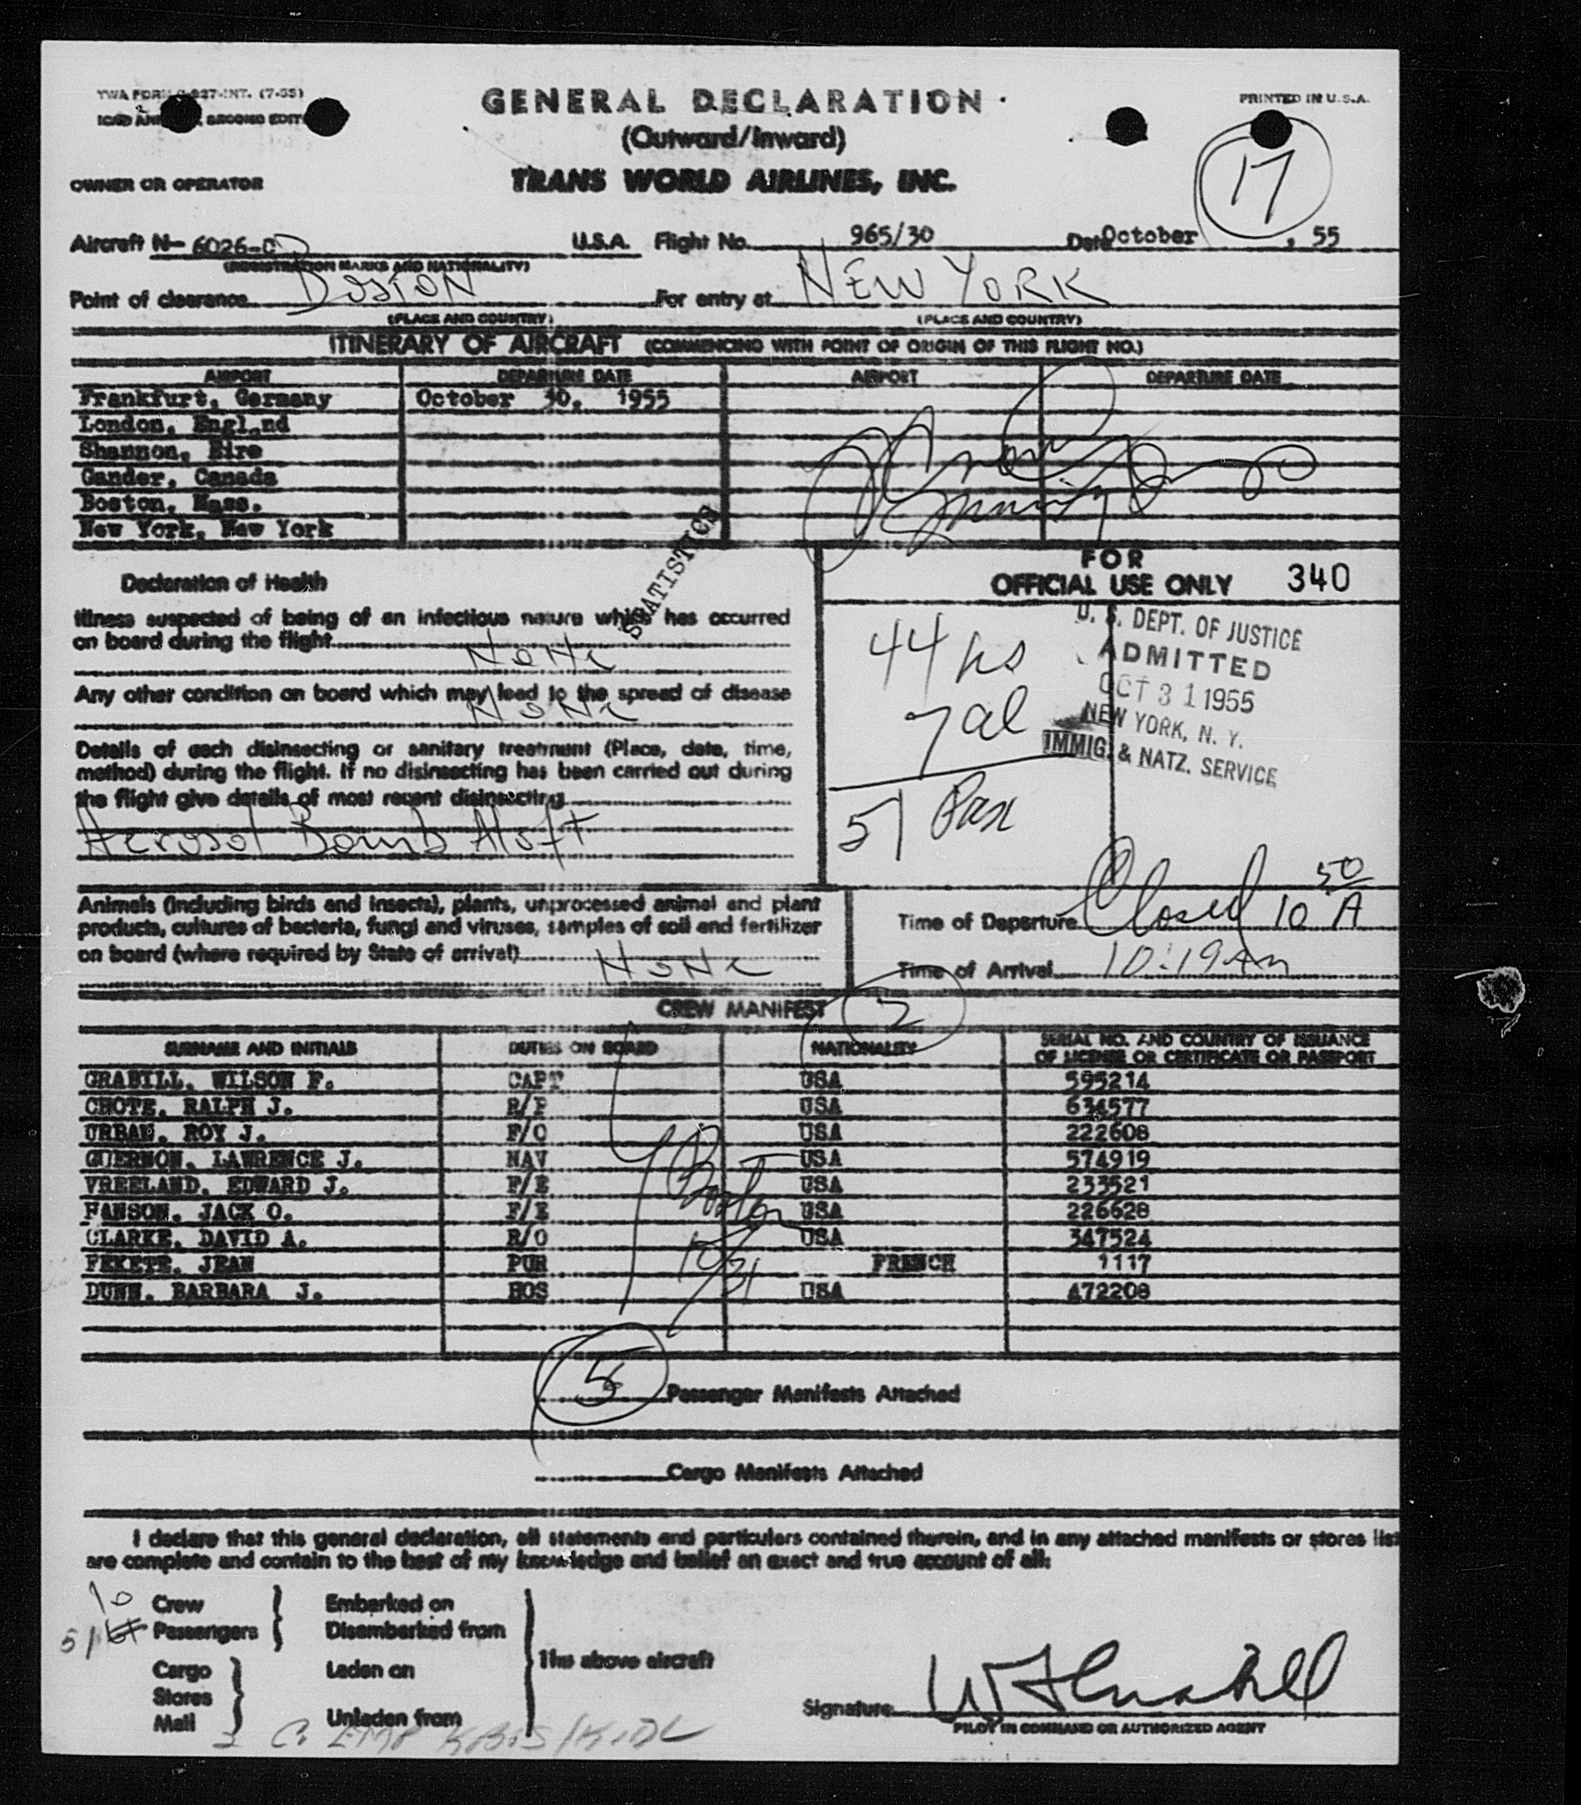 TWA FORM -827-INT. (7-55)
PRINTED IN U.S.A.
SECOND EDIT
GENERAL DECLARATION
(Outward/Inward)
OWNER OR OPERATOR
TRANS WORLD AIRLINES, INC.
17
Aircraft N- 6026-C U.S.A. Flight No. 965/30 Date October , 55
(REGISTRATION MARKS AND NATIONALITY)
Point of clearance BOSTON For entry at NEW YORK
(PLACE AND COUNTRY) (PLACE AND COUNTRY)
ITINERARY OF AIRCRAFT (COMMENCING WITH POINT OF ORIGIN OF THIS FLIGHT NO.)
AIRPORT DEPARTURE DATE AIRPORT DEPARTURE DATE
Frankfurt, Germany October 30, 1955
London, Engl nd
Shannon, Eire
Gander, Canada
Boston, Mass.
New York, New York
STATISTICS
Declaration of Health
Illness suspected of being of an infectious nature which has occurred
on board during the flight NONE
Any other condition on board which may lead to the spread of disease
NONE
Details of each disinsecting or sanitary treatment (Place, date, time,
method) during the flight. If no disinsecting has been carried out during
the flight give details of most recent disinsecting
Aerosol Bomb Aloft
FOR
OFFICIAL USE ONLY 340
44 us
7 al
51 Pax
U. S. DEPT. OF JUSTICE
ADMITTED
OCT 31 1955
NEW YORK, N. Y.
IMMIG. & NATZ. SERVICE
Animals (including birds and insects), plants, unprocessed animal and plant
products, cultures of bacteria, fungi and viruses, samples of soil and fertilizer
on board (where required by State of arrival) NONE
Time of Departure Closed 10 50 A
Time of Arrival 10:19 AM
CREW MANIFEST 2
SURNAME AND INITIALS DUTIES ON BOARD NATIONALITY SERIAL NO. AND COUNTRY OF ISSUANCE
OF LICENSE OR CERTIFICATE OR PASSPORT
GRABILL, WILSON F. CAPT USA 595214
CHOTE, RALPH J. R/P USA 634577
URBAN, ROY J. F/O USA 222608
GUERNON, LAWRENCE J. NAV USA 574919
VREELAND, EDWARD J. F/E USA 233521
HANSON, JACK O. F/E USA 226628
CLARKE, DAVID A. R/O USA 347524
FEKETE, JEAN PUR FRENCH 1117
DUNN, BARBARA J. HOS USA 472208
Boston
10/31
5 Passenger Manifests Attached
Cargo Manifests Attached
I declare that this general declaration, all statements and particulars contained therein, and in any attached manifests or stores list
are complete and contain to the best of my knowledge and belief an exact and true account of all:
10 Crew
51 Passengers
Embarked on
Disembarked from
Cargo
Stores
Mail
Laden on
Unladen from
The above aircraft
Signature W F Grabill
PILOT IN COMMAND OR AUTHORIZED AGENT